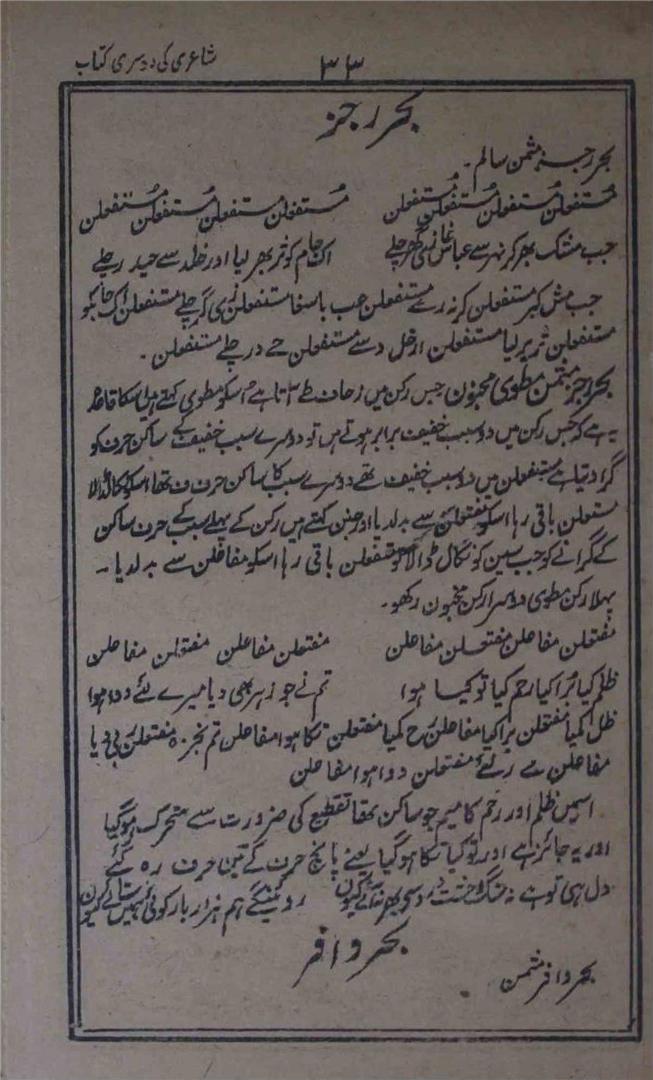 شاعری کی دوسری کتاب
۳۳
بحر رجز
بحر رجز مثمن سالم۔
مُستفعلن مُستفعلن مُستفعلن مُستفعلن مُستفعلن مستفعلن مُستفعلن مُستفعلن
جب مشک بھر کر نہر سے عباس غازی گھر چلے اک جام کوثر بھر لیا اور خلد سے حیدر چلے
جب مش کبر مستفعلن کرنہ رسے مستفعلن عب باسغا مستفعلن زی گرچلے مستفعلن اک جامکو
مستفعلن ثربرلیا مستفعلن ارخل دسے مستفعلن حے درچلے مستفعلن۔
بحر رجز مثمن مطوی مخبون جس رکن میں زحاف طے آتا ہے اسکو مطوی کہتے ہیں اسکا قاعدہ
یہ ہے کہ جس رکن میں دو سبب خفیف برابر ہوتے ہیں تو دوسرے سبب خفیف کے ساکن حرف کو
گرا دیتا ہے مستفعلن میں دو سبب خفیف تھے دوسرے سبب کا ساکن حرف ف تھا اسکو نکالڈالا
مستعلن باقی رہا اسکو مفتعلن سے بدلدیا اور خبن کہتے ہیں رکن کے پہلے سبب کے حرف ساکن
کے گرانے کو جب سین کو نکال ڈالا تو متفعلن باقی رہا اسکو مفاعلن سے بدلدیا۔
پہلا رکن مطوی دوسرا رکن مخبون رکھو۔
مفتعلن مفاعلن مفتعلن مفاعلن مفتعلن مفاعلن مفتعلن مفاعلن
ظلم کیا بُرا کیا رحم کیا تو کیا ہوا تم نے جو زہر بھی دیا میرے لئے دوا ہوا
ظل مکیا مفتعلن براکیا مفاعلن رح مکیا مفتعلن تکا ہوا مفاعلن تم نجزہ مفتعلن ربی دیا
مفاعلن مے رلئے مفتعلن دوا ہوا مفاعلن
اسمیں ظلم اور رحم کا میم جو ساکن تھا تقطیع کی ضرورت سے متحرک ہوگیا
اور یہ جائز ہے اور تو کیا تکا ہوگیا یعنے پانچ حرف کے تین حرف رہ گئے
دل ہی تو ہے نہ سنگ و خشت درد سے بھر نہ آئے کیوں روئینگے ہم ہزار بار کوئی ہمیں ستائے کیوں
بحر وافر
بحر وافر مثمن